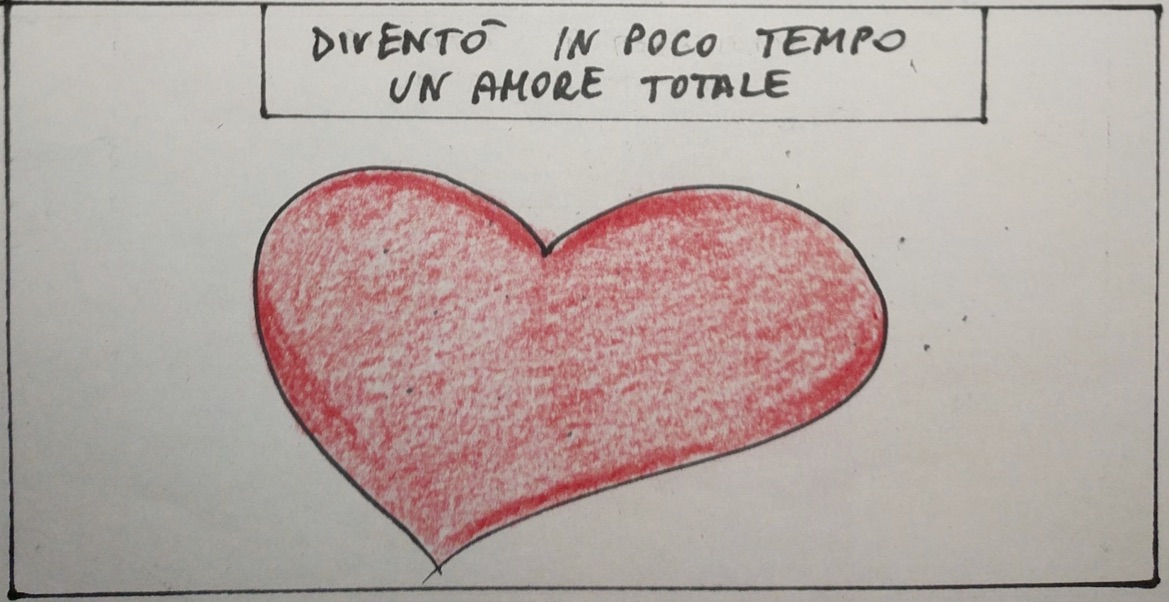 DIVENTÒ IN POCO TEMPO
UN AMORE TOTALE